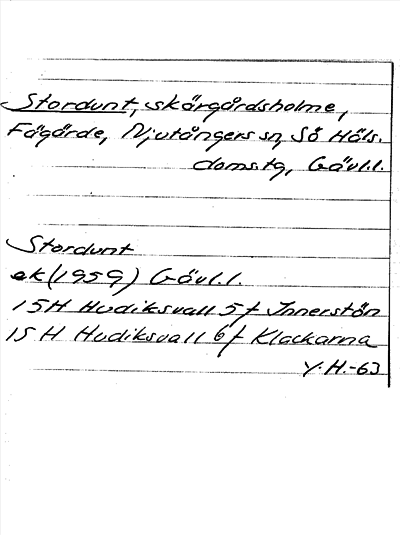 Stordunt, skärgårdsholme,
Fågärde, Njutångers sn, Sö Häls.
doms.tg, Gävl.l.
Stordunt
ek (1959) Gävl.l.
15H Hudiksvall 5f Innerstön
15H Hudiksvall 6f Klackarna
Y.H.-63